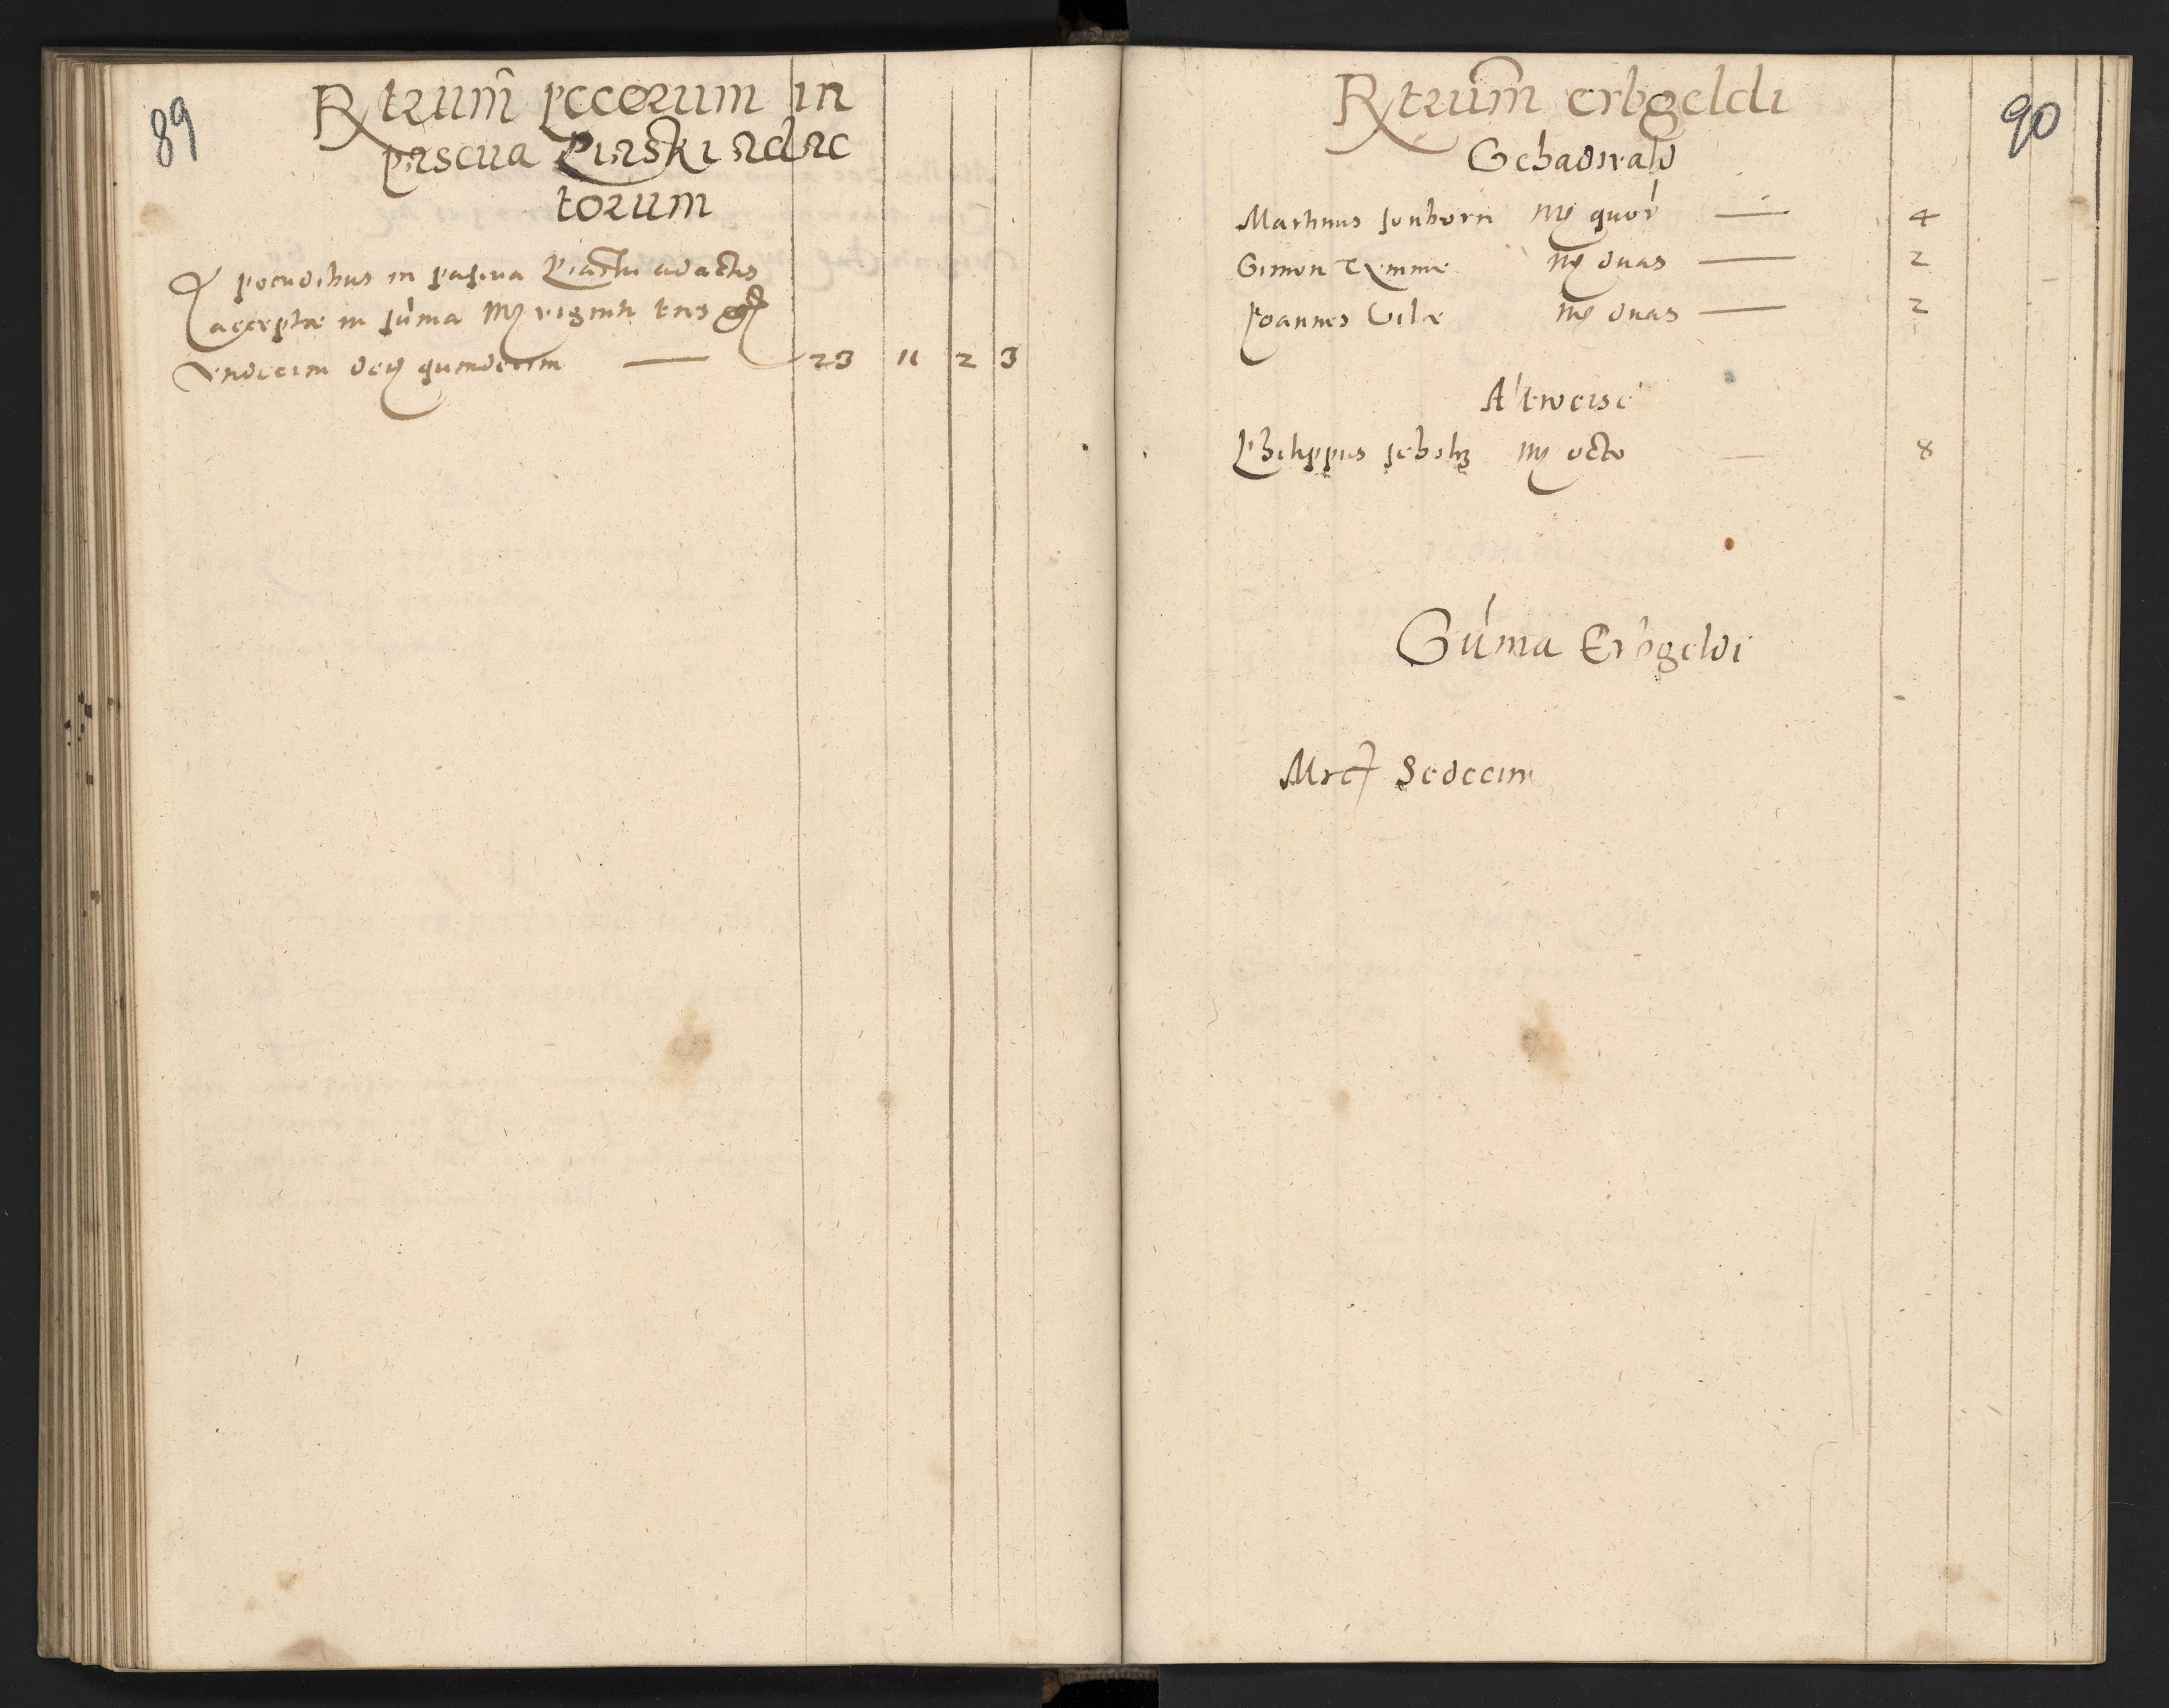 89
Rtrum̃ pecorum in
pascua Piaski adac
torum
A pecudibus in pascua Piaski adactis
acceptæ in sum̃a mrc̃ viginti tres gr̃
vndecim deñ quindecim — 23 11 2 3
90
Rtrum̃ erbgeldi
Schadwalo
Martinus sonborn mrc̃ quor — 4
Simon Temme mrc̃ duas — 2
Joannes mrc̃ duas — 2
Altweise
Philippus scholtz mrc̃ octo — 8
Sum̃a Erbgeldi
Mrc̃ Sedecim